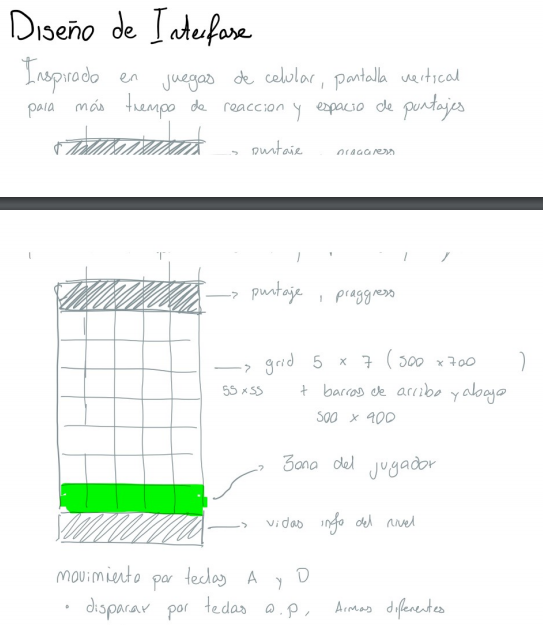 Diseño de Interfase
Inspirado en juegas de celular, pantalla vertical
para más tiempo de reaccion y espacio de puntajes
puntaje
puntaje, praggress
grid 5 x 7 (500 x 700 )
55 x 55 + barras de arriba y abajo
500 x 900
Zona del jugador
vidas info del nivel
movimiento por teclas A y D
• disparar por teclas o.p, Armas diferentes